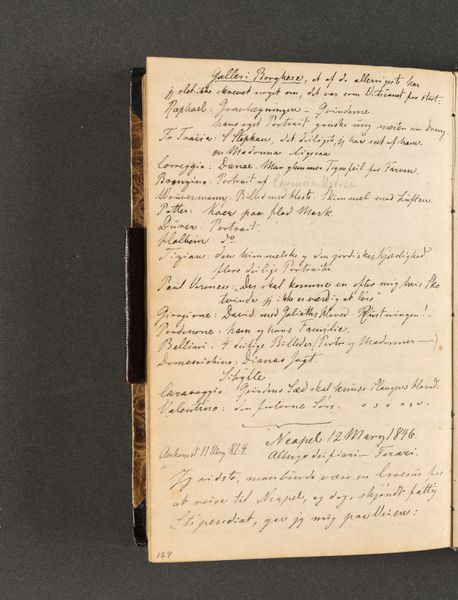 Galleri Borghese, et af de allerrigeste har
jeg slet ikke skrevet noget om, det var som Vaticanet for stort:
Raphael: Gravlægningen – Qvinderne.
hans eget Portrait ganske ung næsten en Dreng
Fr. Francia: St Stephan, det deiligste jeg har seet af ham.
en Madonna ligesaa
Correggio: Danae. Man glemmer Tegnefeil for Farven.
Bronzino: Portrait af
Wouwermann: Billed med Heste. Skimmel mod Luften.
Potter: Køer paa flad Mark.
Dürer: Portrait.
Holbein do
Tizian: den himmelske og den jordiske Kjærlighed
flere deilige Portraiter
Paul Veronese: "Der skal komme en efter mig, hvis Sko
tvinde jeg ikke er værdig at løse"
Giorgione: David med Goliaths Hoved. Rustningen! –
Pordenone: ham og hans Familie.
Bellini: 4 deilige Billeder (Portr og Madonner –)
Domenichino: Dianas Jagt.
Sibylle
Caravaggio: Qvindens Sæd skal knuse Slangens Hoved.
Valentino: den forlorne Søn.
Neapel 12 Marz 1846.
Ankomst 11 Marz Kl. 4. Albergo dei fiori – Ferari.
Jeg vidste, man burde være en Croesus for
at reise til Neapel, og dog, skjøndt fattig
Stipendiat, gav jeg mig paa Veien:
164